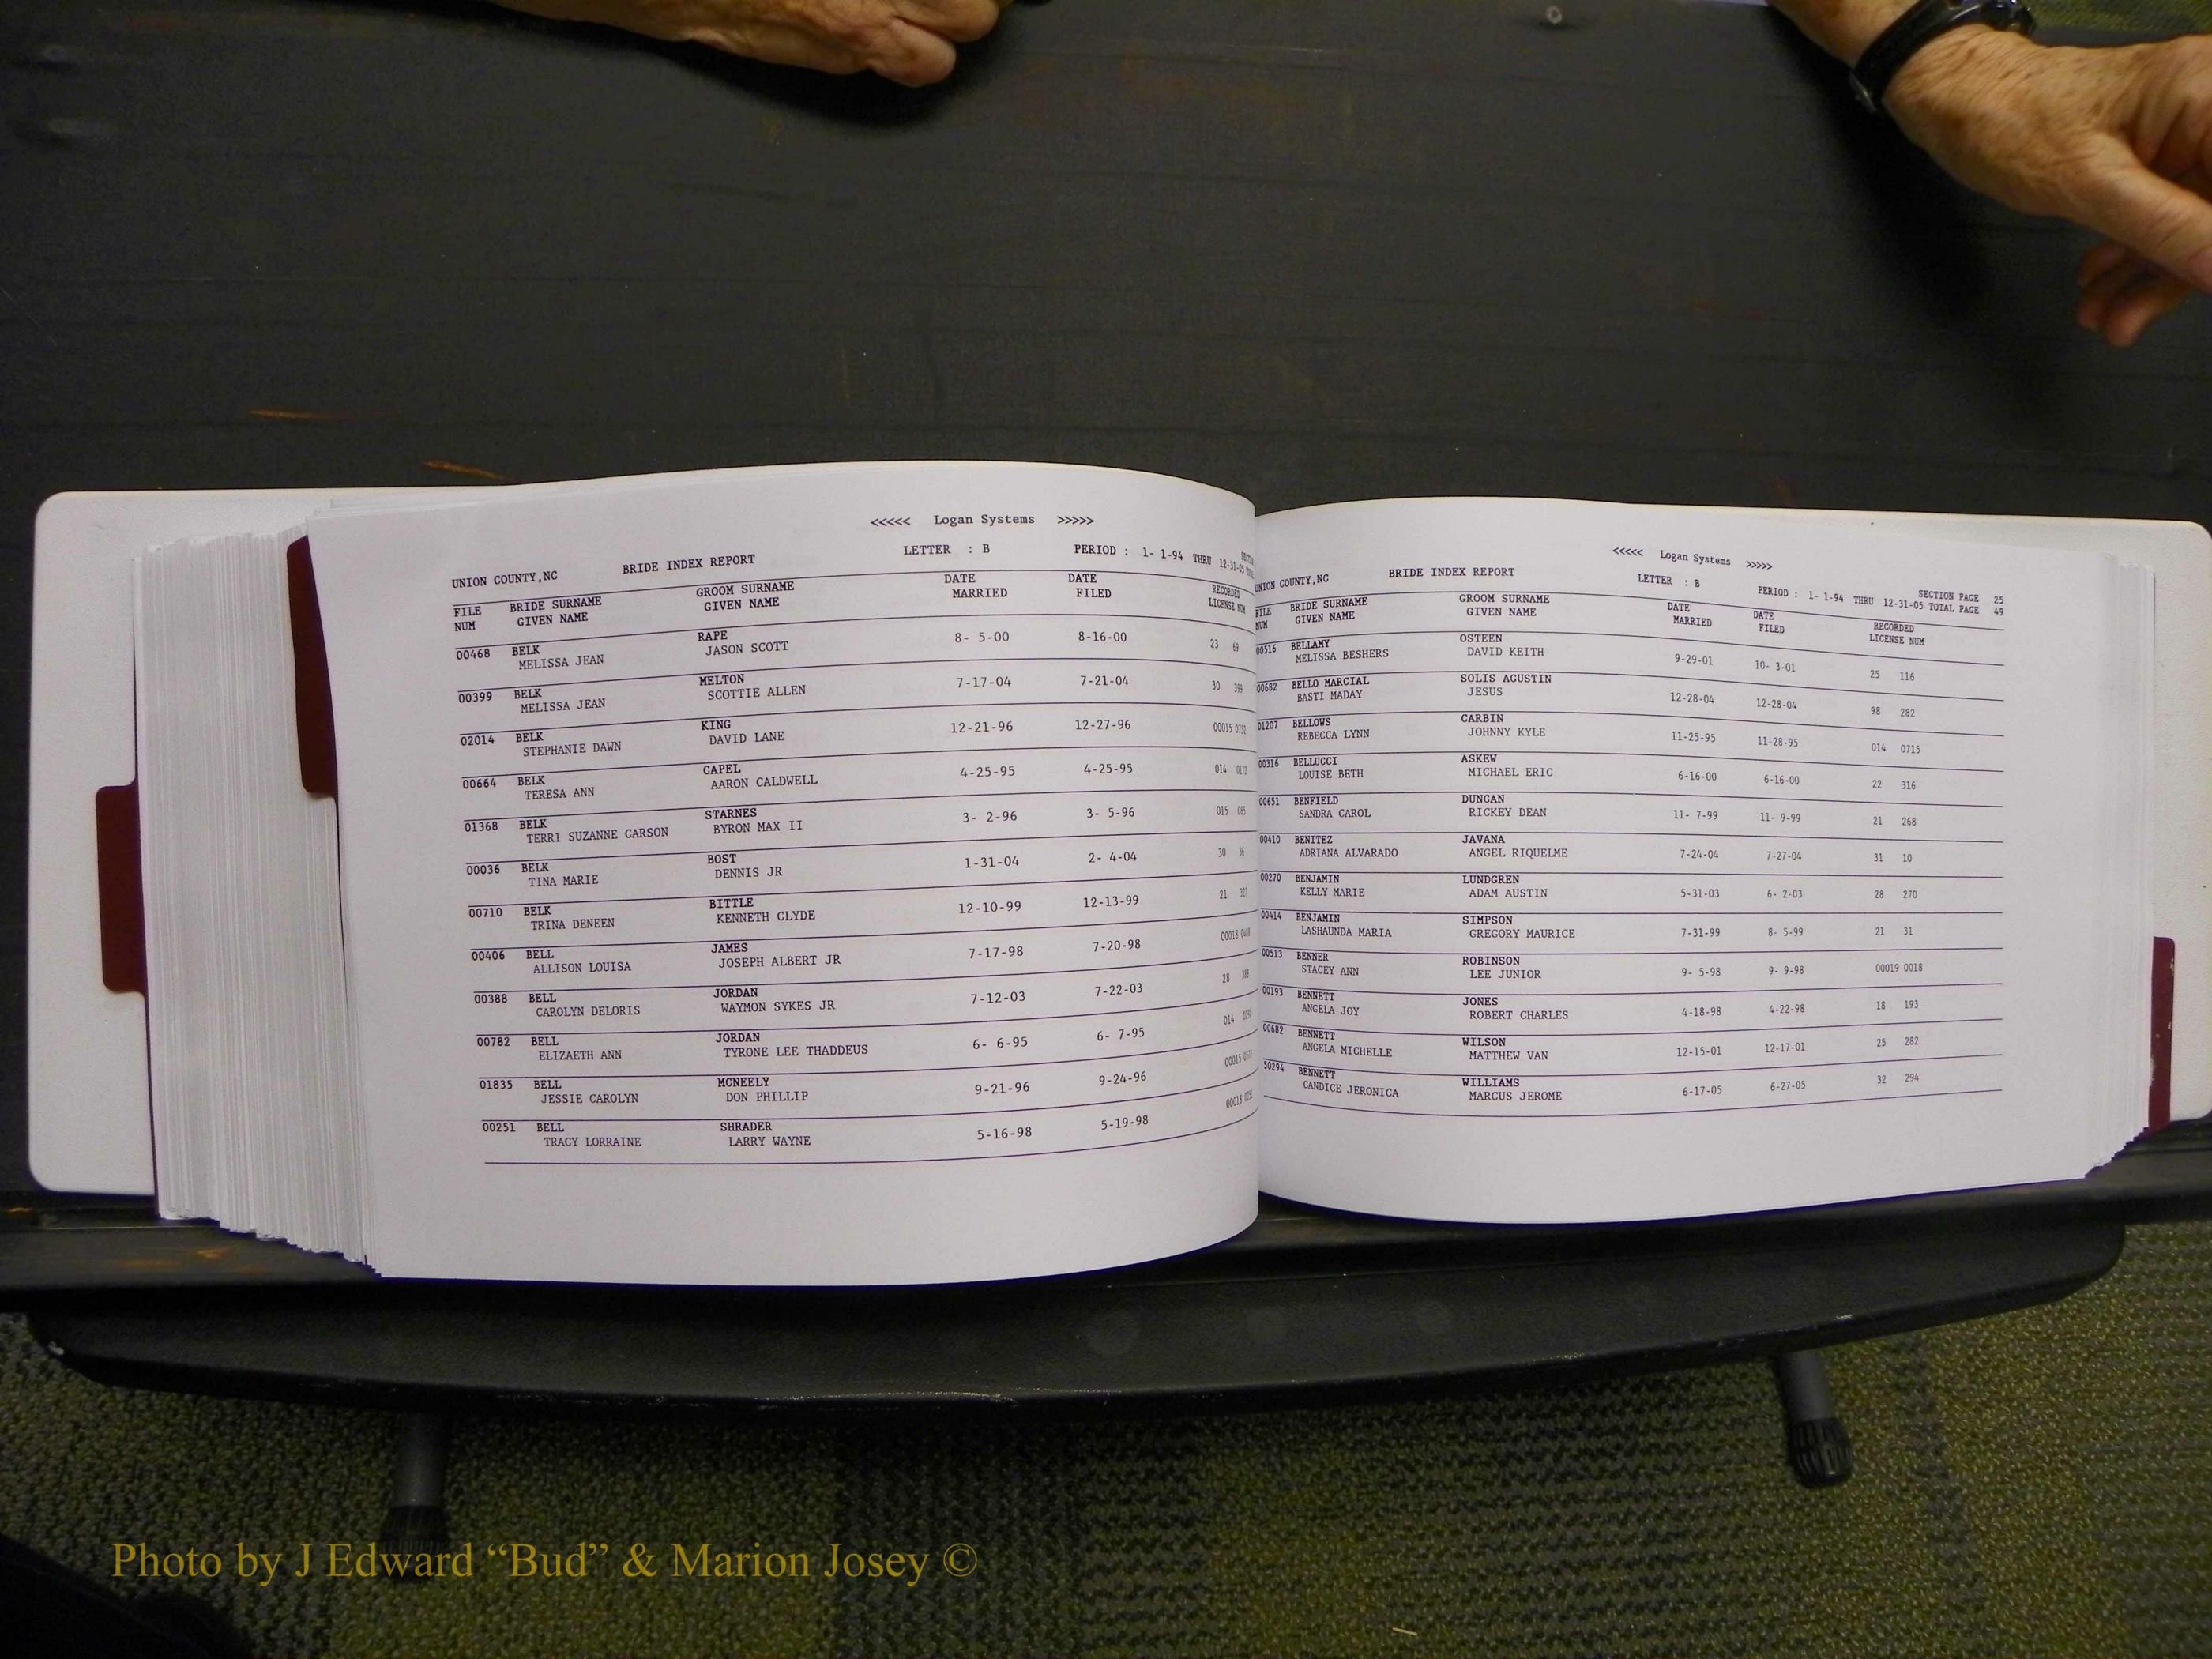 <<<<< Logan Systems >>>>>
UNION COUNTY,NC BRIDE INDEX REPORT LETTER : B PERIOD : 1- 1-94 THRU 12-31-05
FILE BRIDE SURNAME GROOM SURNAME DATE DATE RECORDED
NUM GIVEN NAME GIVEN NAME MARRIED FILED LICENSE NUM
00468 BELK RAPE 8- 5-00 8-16-00 23 69
MELISSA JEAN JASON SCOTT
00399 BELK MELTON 7-17-04 7-21-04 30 399
MELISSA JEAN SCOTTIE ALLEN
02014 BELK KING 12-21-96 12-27-96 00015
STEPHANIE DAWN DAVID LANE
00664 BELK CAPEL 4-25-95 4-25-95 014
TERESA ANN AARON CALDWELL
01368 BELK STARNES 3- 2-96 3- 5-96 015
TERRI SUZANNE CARSON BYRON MAX II
00036 BELK BOST 1-31-04 2- 4-04 30 36
TINA MARIE DENNIS JR
00710 BELK BITTLE 12-10-99 12-13-99 21
TRINA DENEEN KENNETH CLYDE
00406 BELL JAMES 7-17-98 7-20-98 00018
ALLISON LOUISA JOSEPH ALBERT JR
00388 BELL JORDAN 7-12-03 7-22-03 28
CAROLYN DELORIS WAYMON SYKES JR
00782 BELL JORDAN 6- 6-95 6- 7-95 014
ELIZAETH ANN TYRONE LEE THADDEUS
01835 BELL MCNEELY 9-21-96 9-24-96 00015
JESSIE CAROLYN DON PHILLIP
00251 BELL SHRADER 5-16-98 5-19-98 00018
TRACY LORRAINE LARRY WAYNE
<<<<< Logan Systems >>>>>
UNION COUNTY,NC BRIDE INDEX REPORT LETTER : B SECTION PAGE 25
PERIOD : 1- 1-94 THRU 12-31-05 TOTAL PAGE 49
FILE BRIDE SURNAME GROOM SURNAME DATE DATE RECORDED
NUM GIVEN NAME GIVEN NAME MARRIED FILED LICENSE NUM
00516 BELLAMY OSTEEN 9-29-01 10- 3-01 25 116
MELISSA BESHERS DAVID KEITH
00682 BELLO MARCIAL SOLIS AGUSTIN 12-28-04 12-28-04 98 282
BASTI MADAY JESUS
01207 BELLOWS CARBIN 11-25-95 11-28-95 014 0715
REBECCA LYNN JOHNNY KYLE
00316 BELLUCCI ASKEW 6-16-00 6-16-00 22 316
LOUISE BETH MICHAEL ERIC
00651 BENFIELD DUNCAN 11- 7-99 11- 9-99 21 268
SANDRA CAROL RICKEY DEAN
00410 BENITEZ JAVANA 7-24-04 7-27-04 31 10
ADRIANA ALVARADO ANGEL RIQUELME
00270 BENJAMIN LUNDGREN 5-31-03 6- 2-03 28 270
KELLY MARIE ADAM AUSTIN
00414 BENJAMIN SIMPSON 7-31-99 8- 5-99 21 31
LASHAUNDA MARIA GREGORY MAURICE
00513 BENNER ROBINSON 9- 5-98 9- 9-98 00019 0018
STACEY ANN LEE JUNIOR
00193 BENNETT JONES 4-18-98 4-22-98 18 193
ANGELA JOY ROBERT CHARLES
00682 BENNETT WILSON 12-15-01 12-17-01 25 282
ANGELA MICHELLE MATTHEW VAN
50294 BENNETT WILLIAMS 6-17-05 6-27-05 32 294
CANDICE JERONICA MARCUS JEROME
Photo by J Edward “Bud” & Marion Josey ©